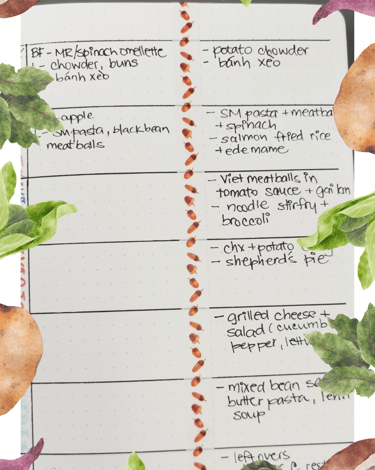 BF - MR/spinach omellette
- chowder, buns
bánh xèo
apple
SM pasta, blackbean
meatballs
- potato chowder
- bánh xèo
- SM pasta + meatba
+ spinach
- salmon fried rice
+ edemame
- Viet meatballs in
tomato sauce + gai lan
- noodle stirfry +
broccoli
- chx + potato
- shepherd's pie
- grilled cheese +
salad (cucumb
pepper, lett
- mixed bean
butter pasta,
soup
- leftovers